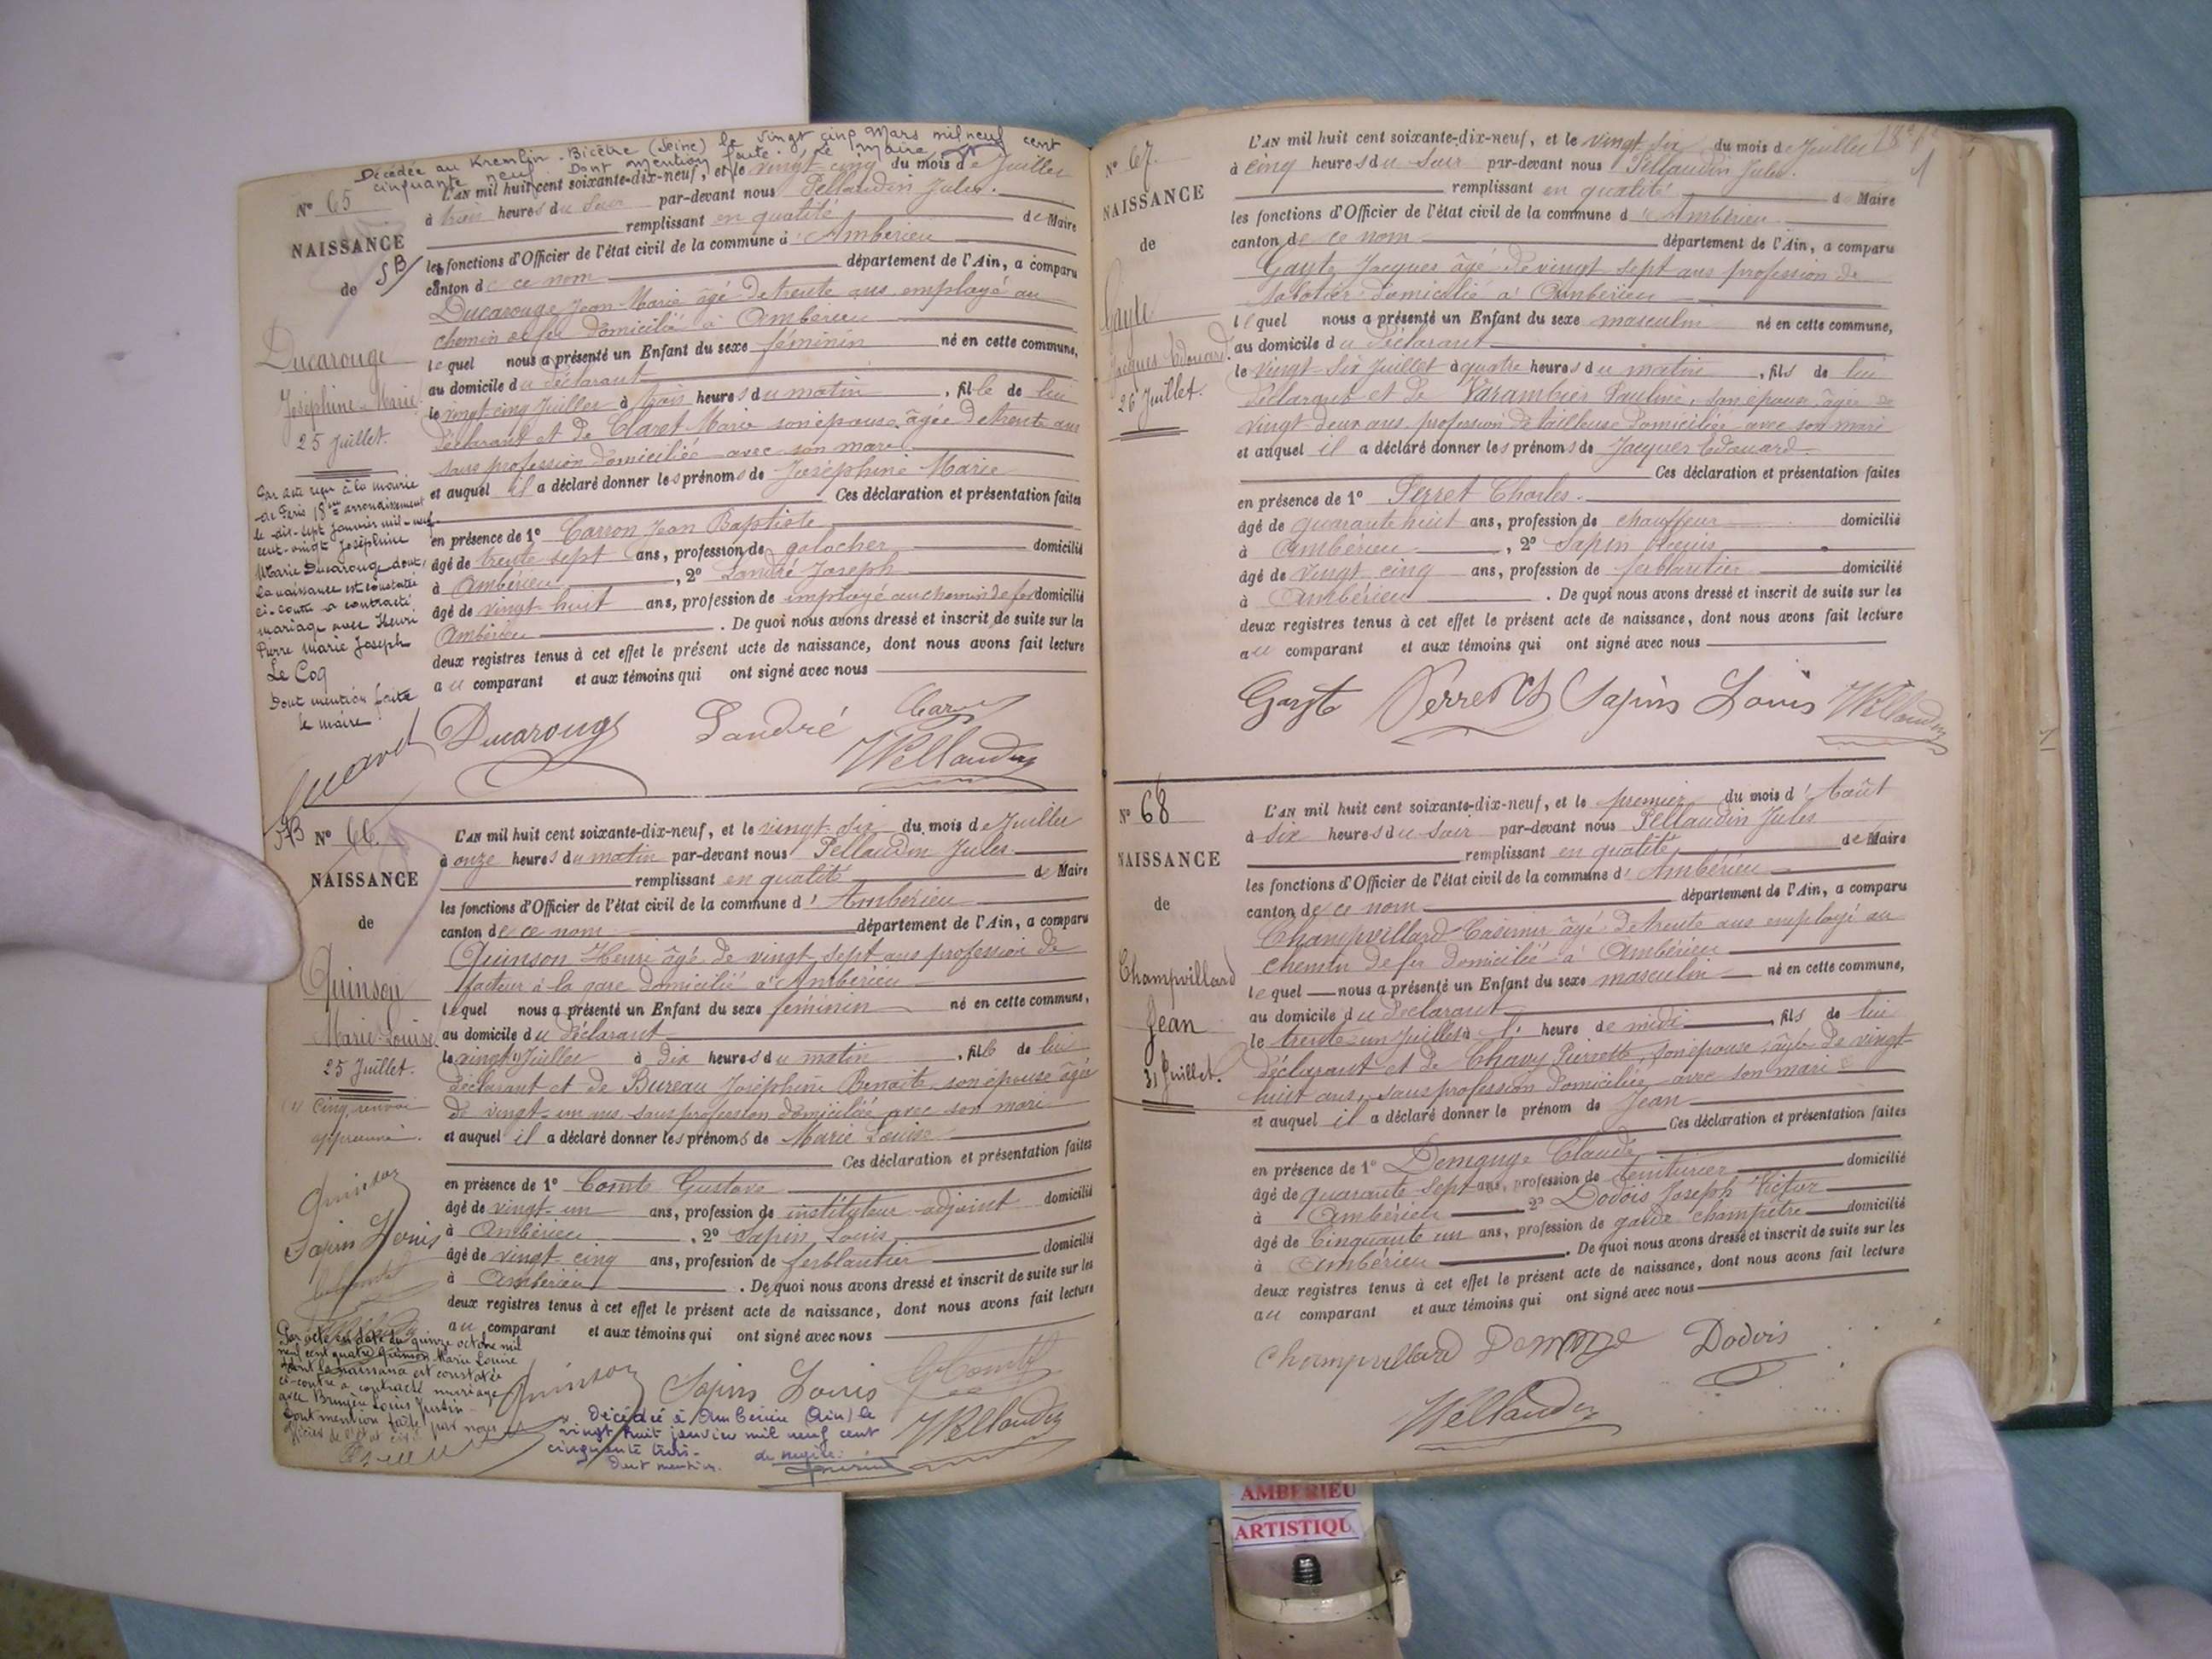 Décédée au Kremlin-Bicêtre (Seine) le vingt cinq Mars mil neuf cent
cinquante neuf. Dont mention faite. Le Maire
N° 65
NAISSANCE
de
SB
Ducarouge
Joséphine-Marie
25 Juillet.
Par acte reçu à la mairie
de Paris 18me arrondissement
le dix-sept Janvier mil-neuf
cent-vingt Joséphine
Marie Ducarouge dont
la naissance est constatée
ci-contre a contracté
mariage avec Henri
Pierre Marie Joseph
Le Coq
Dont mention faite
le maire
L'AN mil huit cent soixante-dix-neuf, et le vingt-cinq du mois de Juillet
à trois heures du soir par-devant nous Pellaudin Jules.
remplissant en qualité de Maire
les fonctions d'Officier de l'état civil de la commune d'Ambérieu
canton de ce nom département de l'Ain, a comparu
Ducarouge Jean-Marie âgé de trente ans employé au
chemin de fer domicilié à Ambérieu
lequel nous a présenté un Enfant du sexe féminin né en cette commune,
au domicile du déclarant
le vingt cinq Juillet à trois heures du matin, fille de lui
déclarant et de Claret Marie son épouse, âgée de trente ans
sans profession domiciliée avec son mari
et auquel il a déclaré donner les prénoms de Joséphine Marie
Ces déclaration et présentation faites
en présence de 1° Carron Jean Baptiste
âgé de trente sept ans, profession de galocher domicilié
à Ambérieu, 2° Landré Joseph
âgé de vingt huit ans, profession de employé au chemin de fer domicilié
Ambérieu. De quoi nous avons dressé et inscrit de suite sur les
deux registres tenus à cet effet le présent acte de naissance, dont nous avons fait lecture
au comparant et aux témoins qui ont signé avec nous
Ducarouge Landré Carron
JPellaudin
N° 66.
NAISSANCE
de
Quinson
Marie-Louise
25 Juillet.
(1) Cinq renvoi
approuvé.
Quinson
Sapin Louis
Par acte en date du quinze octobre mil
neuf cent quatre Quinson Marie Louise
dont la naissance est constatée
ci-contre a contracté mariage
avec Brunjeu Louis Justin
dont mention faite par nous
officier de l'état civil
L'AN mil huit cent soixante-dix-neuf, et le vingt-six du mois de Juillet
à onze heures du matin par-devant nous Pellaudin Jules.
remplissant en qualité de Maire
les fonctions d'Officier de l'état civil de la commune d'Ambérieu
canton de ce nom département de l'Ain, a comparu
Quinson Henri âgé de vingt sept ans profession de
facteur à la gare domicilié à Ambérieu
lequel nous a présenté un Enfant du sexe féminin né en cette commune,
au domicile du déclarant
le vingt (1) Juillet à dix heures du matin, fille de lui
déclarant et de Bureau Joséphine Benoite son épouse âgée
de vingt-un ans sans profession domiciliée avec son mari
et auquel il a déclaré donner les prénoms de Marie Louise
Ces déclaration et présentation faites
en présence de 1° Comte Gustave
âgé de vingt-un ans, profession de instituteur adjoint domicilié
à Ambérieu, 2° Sapin Louis
âgé de vingt cinq ans, profession de ferblantier domicilié
à Ambérieu. De quoi nous avons dressé et inscrit de suite sur les
deux registres tenus à cet effet le présent acte de naissance, dont nous avons fait lecture
au comparant et aux témoins qui ont signé avec nous
Quinson Sapin Louis G Comte
JPellaudin
Décédée à Ambérieu (Ain) le
vingt huit janvier mil neuf cent
cinquante trois.
Dont mention.
N° 67.
NAISSANCE
de
Gayte
Jacques Edouard.
26 Juillet.
L'AN mil huit cent soixante-dix-neuf, et le vingt six du mois de Juillet
à cinq heures du soir par-devant nous Pellaudin Jules.
remplissant en qualité de Maire
les fonctions d'Officier de l'état civil de la commune d'Ambérieu
canton de ce nom département de l'Ain, a comparu
Gayte Jacques âgé de vingt sept ans profession de
sabotier domicilié à Ambérieu
lequel nous a présenté un Enfant du sexe masculin né en cette commune,
au domicile du déclarant
le vingt-six Juillet à quatre heures du matin, fils de lui
déclarant et de Varambier Pauline, son épouse, âgée de
vingt-deux ans, profession de tailleuse domiciliée avec son mari
et auquel il a déclaré donner les prénoms de Jacques Edouard.
Ces déclaration et présentation faites
en présence de 1° Perret Charles.
âgé de quarante huit ans, profession de chauffeur domicilié
à Ambérieu, 2° Sapin Louis
âgé de vingt cinq ans, profession de ferblantier domicilié
à Ambérieu. De quoi nous avons dressé et inscrit de suite sur les
deux registres tenus à cet effet le présent acte de naissance, dont nous avons fait lecture
au comparant et aux témoins qui ont signé avec nous
Gayte Perret Ch Sapin Louis JPellaudin
N° 68
NAISSANCE
de
Champvillard
Jean
31 Juillet.
L'AN mil huit cent soixante-dix-neuf, et le premier du mois d'Août
à six heures du soir par-devant nous Pellaudin Jules
remplissant en qualité de Maire
les fonctions d'Officier de l'état civil de la commune d'Ambérieu
canton de ce nom département de l'Ain, a comparu
Champvillard Casimir âgé de trente ans employé au
chemin de fer domicilié à Ambérieu
lequel nous a présenté un Enfant du sexe masculin né en cette commune,
au domicile du déclarant
le trente-un Juillet à l' heure de midi, fils de lui
déclarant et de Chavy Pierrette, son épouse, âgée de vingt
huit ans, sans profession domiciliée avec son mari
et auquel il a déclaré donner le prénom de Jean
Ces déclaration et présentation faites
en présence de 1° Demange Claude
âgé de quarante sept ans, profession de teinturier domicilié
à Ambérieu 2° Dodois Joseph Victor
âgé de Cinquante un ans, profession de garde champêtre domicilié
à Ambérieu. De quoi nous avons dressé et inscrit de suite sur les
deux registres tenus à cet effet le présent acte de naissance, dont nous avons fait lecture
au comparant et aux témoins qui ont signé avec nous
Champvillard Demange Dodois
JPellaudin
AMBERIEU
ARTISTIQU